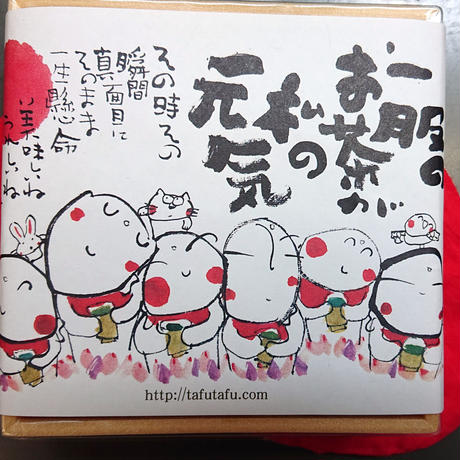 一服の
お茶が
私の
元気
その時その
瞬間
真面目に
そのまま
一生懸命
美味しいね
うれしいね
http://tafutafu.com